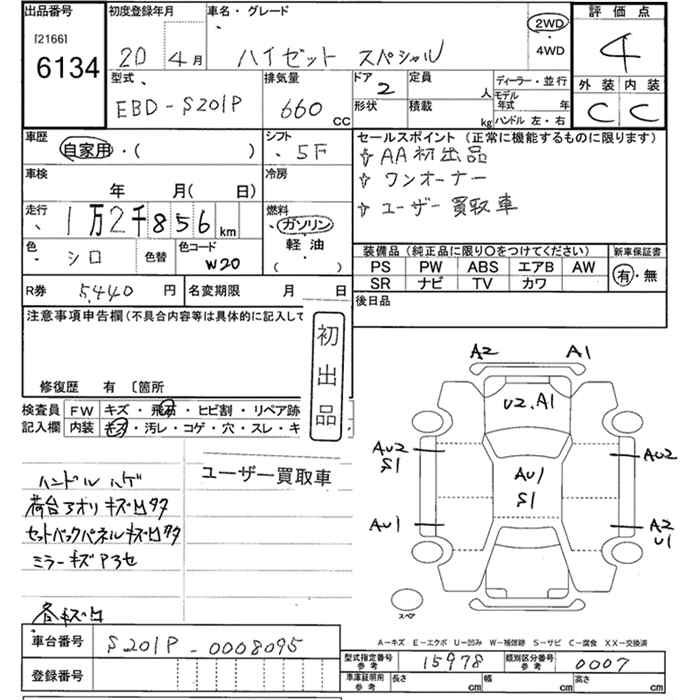 出品番号
[2166]
6134
初度登録年月
20 年 4 月
車名・グレード
ハイゼット スペシャル
2WD
4WD
評価点
4
外装 内装
C C
型式
EBD-S201P
排気量
660 CC
ドア
2
形状
定員
人
積載
kg
ディーラー・並行
モデル年式 年
ハンドル 左・右
車歴
自家用・( )
シフト
5F
セールスポイント (正常に機能するものに限ります)
☆ AA初出品
☆ ワンオーナー
☆ ユーザー買取車
車検
年 月( 日)
冷房
走行
1万2千856 km
燃料
ガソリン
軽油
( )
色
シロ
色替
色コード
W20
装備品 (純正品に限り○をつけてください)
PS PW ABS エアB AW
SR ナビ TV カワ
新車保証書
有・無
R券 5,440 円
名変期限 月 日
後日品
注意事項申告欄(不具合内容等は具体的に記入して
修復歴 有 〔箇所
初出品
検査員
記入欄
FW キズ・飛石・ヒビ割・リペア跡
内装 キズ・汚レ・コゲ・穴・スレ・キ
ユーザー買取車
ハンドルハゲ
荷台アオリキズ凹タタ
セットバックパネルキズ凹タタ
ミラーキズ
各キズ凹
A2 A1
U2.A1
AU2
S1
AU1
S1
AU2
AU1
A2
U1
スペア
A-キズ E-エクボ U-凹み W-補修跡 S-サビ C-腐食 XX-交換済
車台番号 S201P-0008095
登録番号
型式指定番号
参考
15978
類別区分番号
参考
0007
車庫証明用
参考
長さ cm 幅 cm 高さ cm